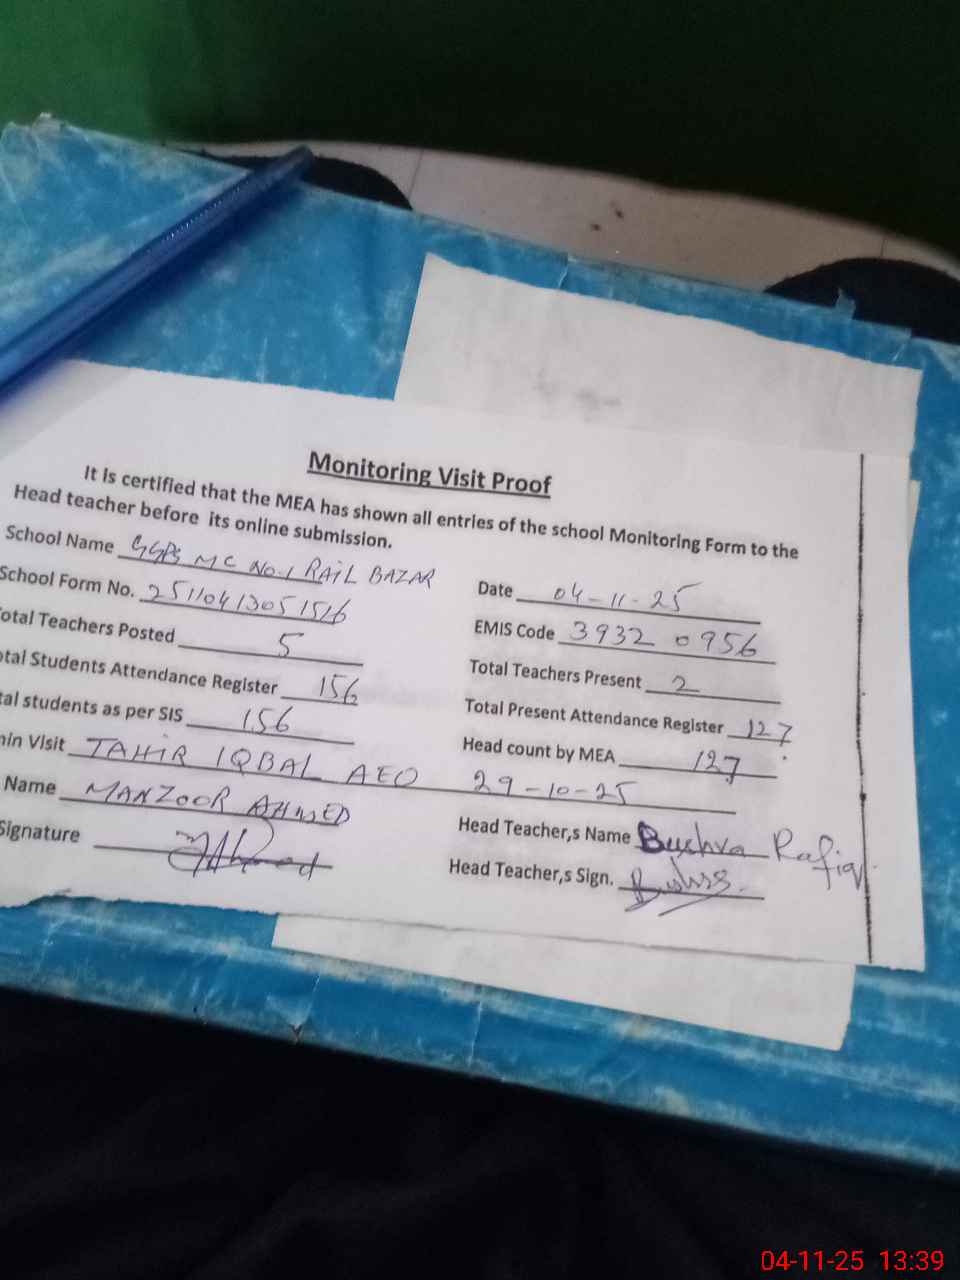 Monitoring Visit Proof
It is certified that the MEA has shown all entries of the school Monitoring Form to the
Head teacher before its online submission.
School Name GGPS MC No.1 RAIL BAZAR
Date 04-11-25
School Form No. 25110413051516
EMIS Code 39320956
otal Teachers Posted 5
Total Teachers Present 2
otal Students Attendance Register 156
Total Present Attendance Register 127
tal students as per SIS 156
Head count by MEA 127
min Visit TAHIR IQBAL AEO 29-10-25
Name MANZOOR AHMED
Head Teacher,s Name Bushra Rafiq
Signature
Head Teacher,s Sign. Bushra
04-11-25 13:39